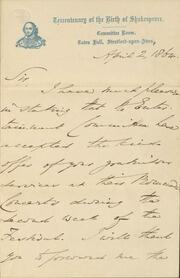 Tercentenary of the Birth of Shakespeare.
Committee Room,
Town Hall, Stratford-upon-Avon,
April 2, 1864.
Sir
I have much pleasure
in stating that the Enter-
tainment Committee have
accepted the kind
offer of your gratuitous
services at their
Concerts during the
second week of the
Festival. I will thank
you to forward me the